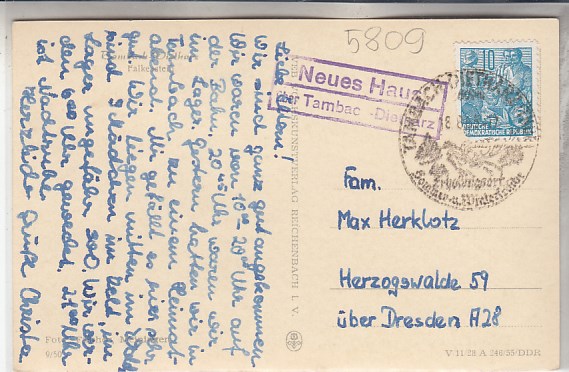 5809
Liebe Eltern!
Wir sind ganz gut angekommen
Wir waren von 10⁰⁰ - 20⁰⁰ Uhr auf
der Bahn. 20⁴⁵ Uhr waren wir
im Lager. Gestern hatten wir in
Tambach zu einem Heimat-
abend. Mir gefällt es hier sehr
gut. Wir liegen mitten im Wald
sind 9 Mädchen im Zelt, im
Lager ungefähr 300. Wir wer-
den 6⁰⁰ Uhr geweckt. 21⁰⁰ Uhr
ist Nachtruhe.
Herzliche Grüße Christa
Falkenstein
Foto
9/50
KUNSTVERLAG REICHENBACH I. V.
Neues Haus
über Tambac -Dietharz
10
DEUTSCHE
DEMOKRATISCHE REPUBLIK
TAMBACH-DIETHARZ
Erholungsort
Sommer- u. Winterfrische
Fam.
Max Herklotz
Herzogswalde 59
über Dresden A28
V 11/28 A 246/55/DDR